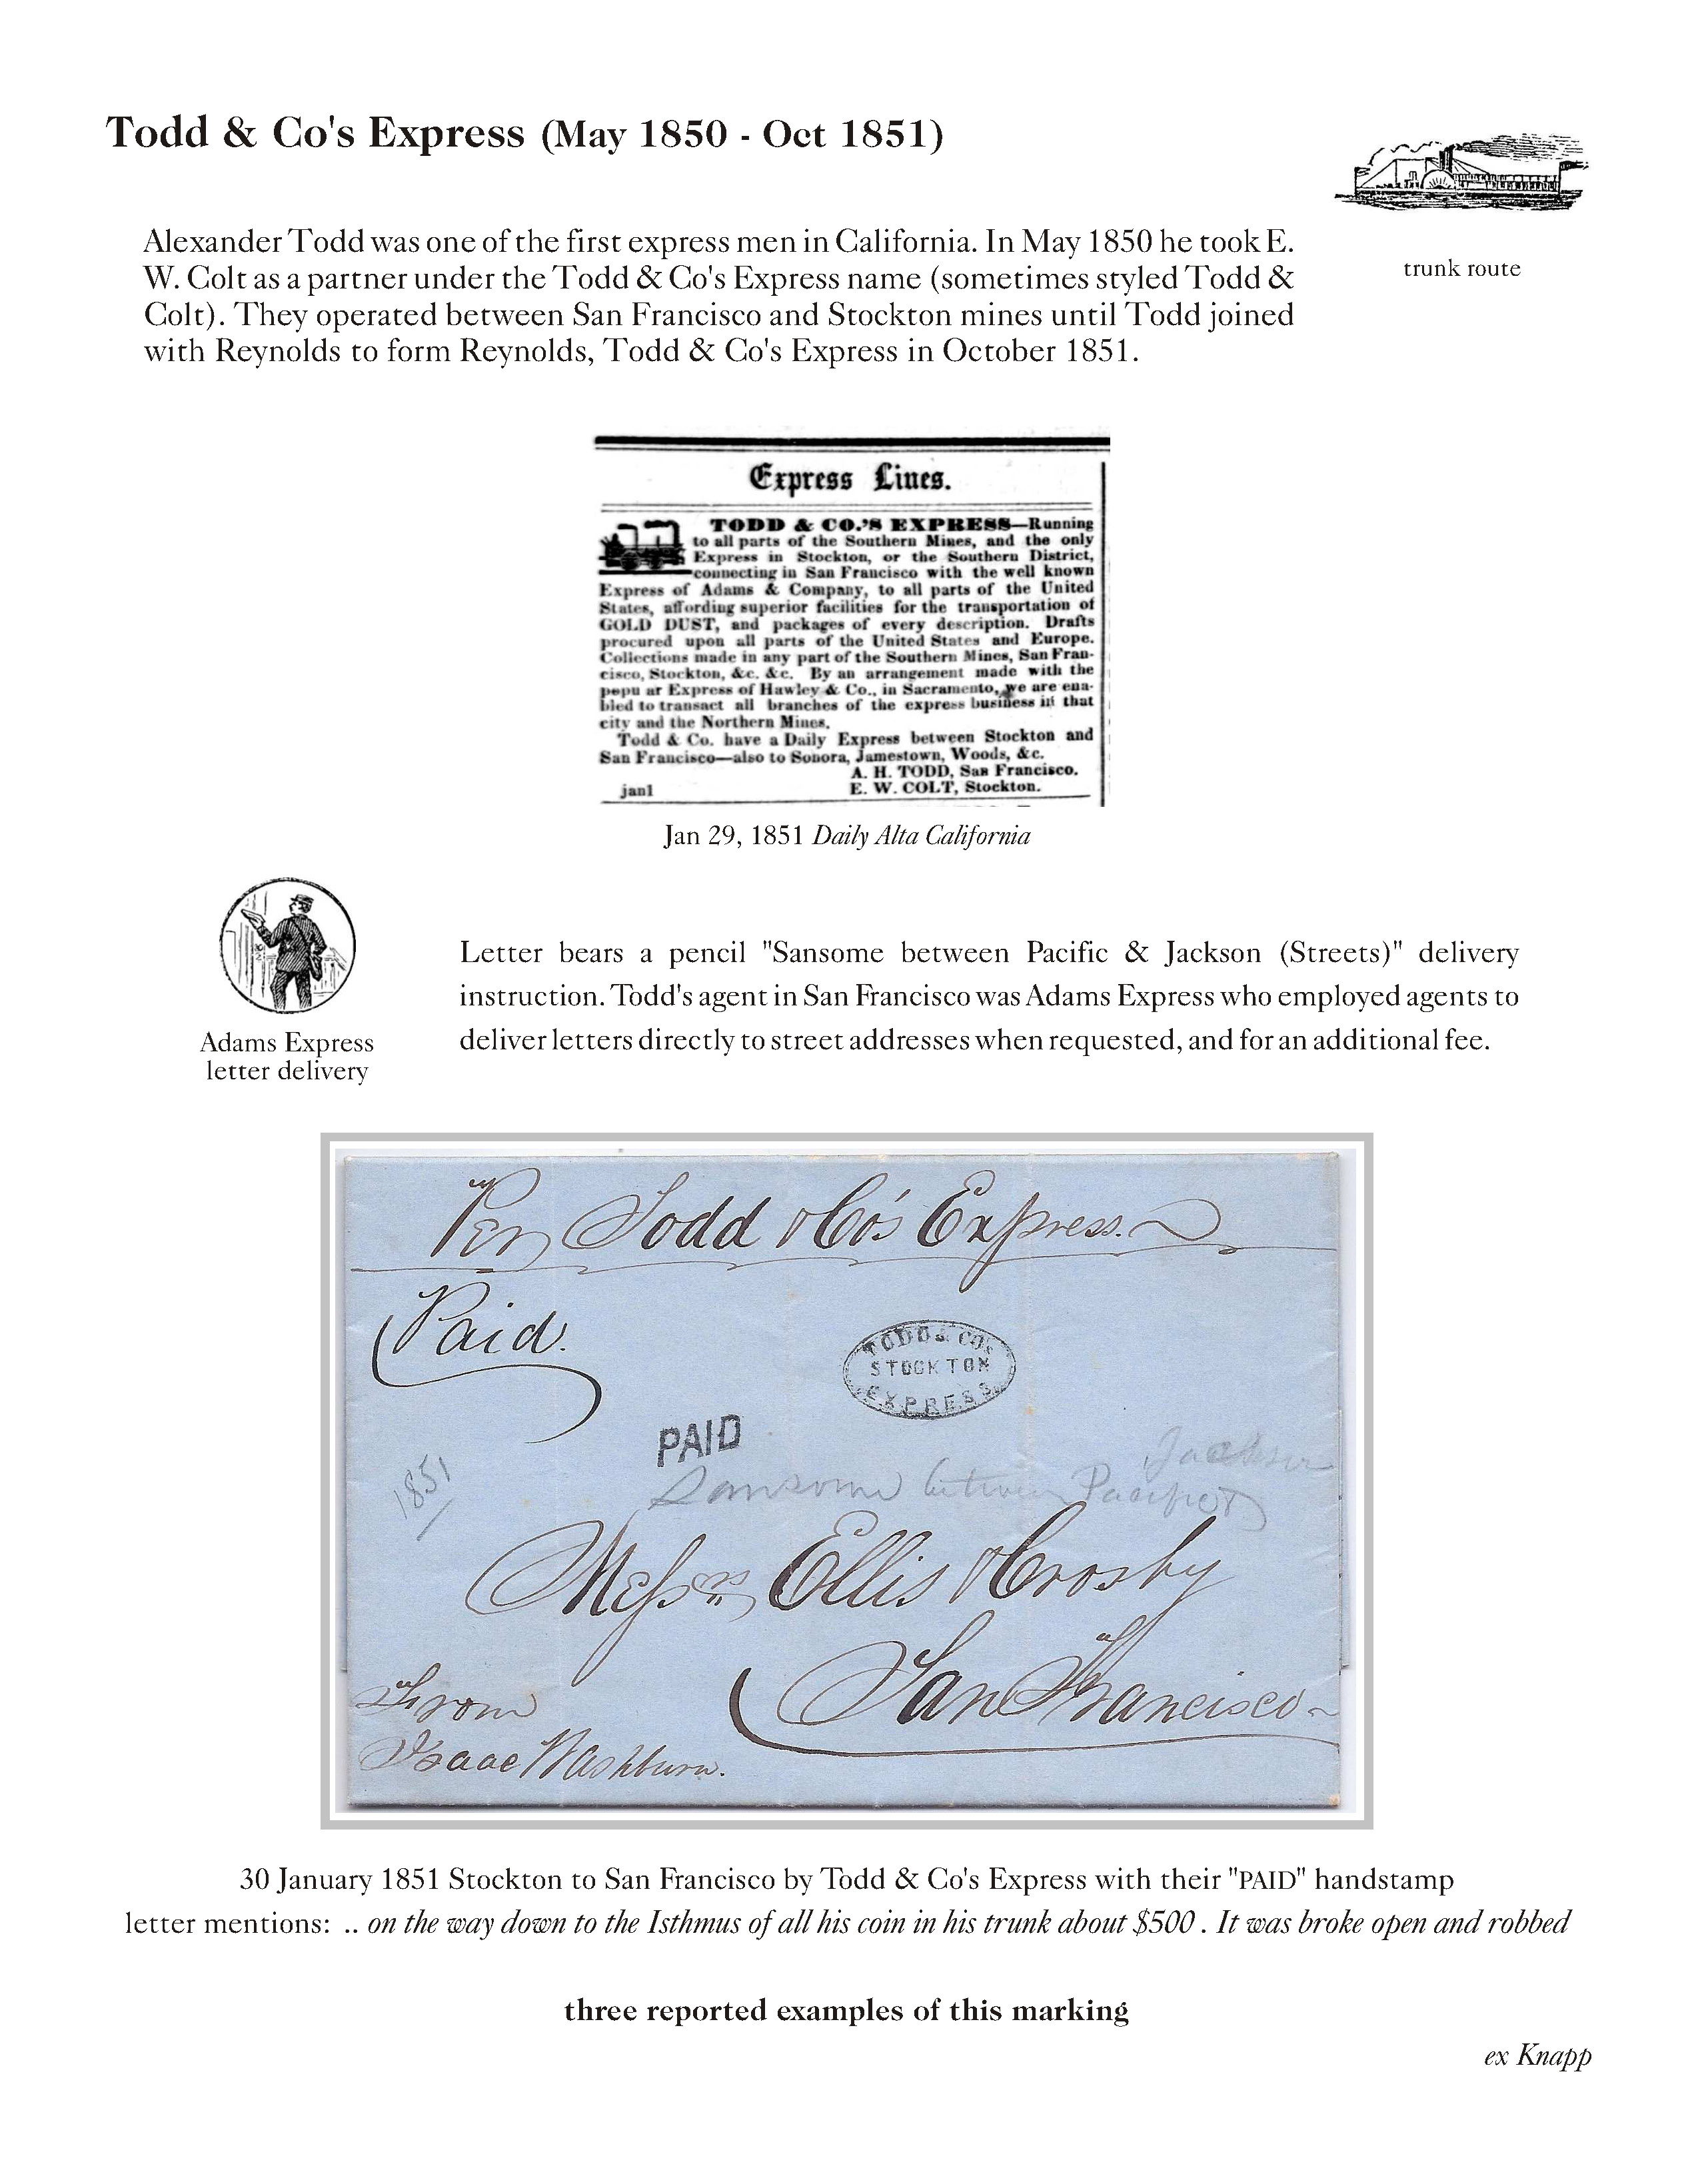 Todd & Co's Express (May 1850 - Oct 1851)
trunk route
Alexander Todd was one of the first express men in California. In May 1850 he took E.
W. Colt as a partner under the Todd & Co's Express name (sometimes styled Todd &
Colt). They operated between San Francisco and Stockton mines until Todd joined
with Reynolds to form Reynolds, Todd & Co's Express in October 1851.
Express Lines.
TODD & CO.'S EXPRESS—Running
to all parts of the Southern Mines, and the only
Express in Stockton, or the Southern District,
connecting in San Francisco with the well known
Express of Adams & Company, to all parts of the United
States, affording superior facilities for the transportation of
GOLD DUST, and packages of every description. Drafts
procured upon all parts of the United States and Europe.
Collections made in any part of the Southern Mines, San Fran-
cisco, Stockton, &c. &c. By an arrangement made with the
popu ar Express of Hawley & Co., in Sacramento, we are ena-
bled to transact all branches of the express business in that
city and the Northern Mines.
Todd & Co. have a Daily Express between Stockton and
San Francisco—also to Sonora, Jamestown, Woods, &c.
A. H. TODD, San Francisco.
jan1 E. W. COLT, Stockton.
Jan 29, 1851 Daily Alta California
Adams Express
letter delivery
Letter bears a pencil "Sansome between Pacific & Jackson (Streets)" delivery
instruction. Todd's agent in San Francisco was Adams Express who employed agents to
deliver letters directly to street addresses when requested, and for an additional fee.
Per Todd & Co's Express.
Paid.
TODD & CO'S
STOCKTON
EXPRESS
PAID
1851
Jackson
Sansome between Pacific
Messrs Ellis & Crosby
San Francisco
From
Isaac Washburn.
30 January 1851 Stockton to San Francisco by Todd & Co's Express with their "PAID" handstamp
letter mentions: .. on the way down to the Isthmus of all his coin in his trunk about $500 . It was broke open and robbed
three reported examples of this marking
ex Knapp